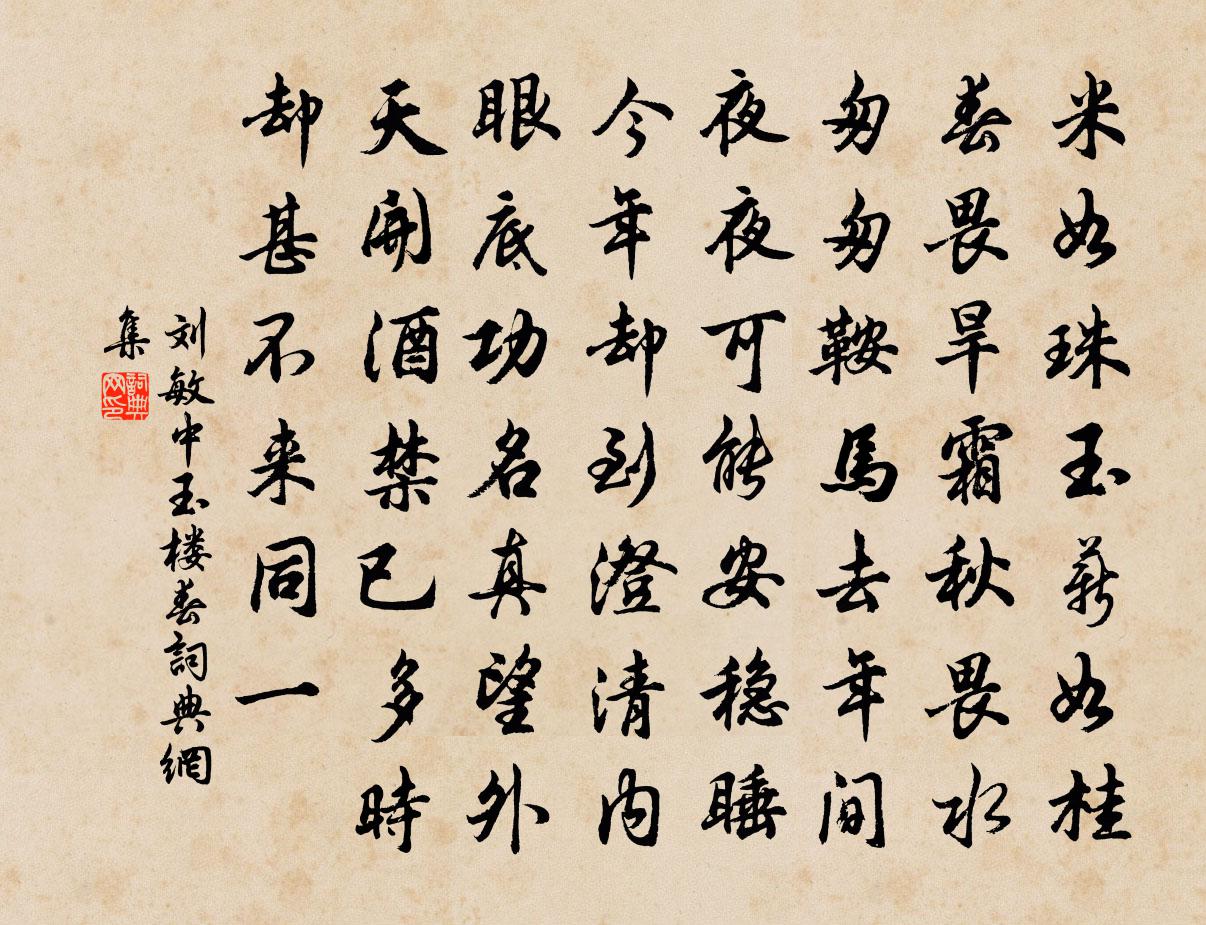 米如珠玉薪如桂
春畏旱霜秋畏水
匆匆鞍馬去年间
夜夜可能安穏睡
今年却到澄清内
眼底功名真望外
天開酒禁已多時
却甚不来同一
刘敏中玉楼春詞典網
集
詞典网印